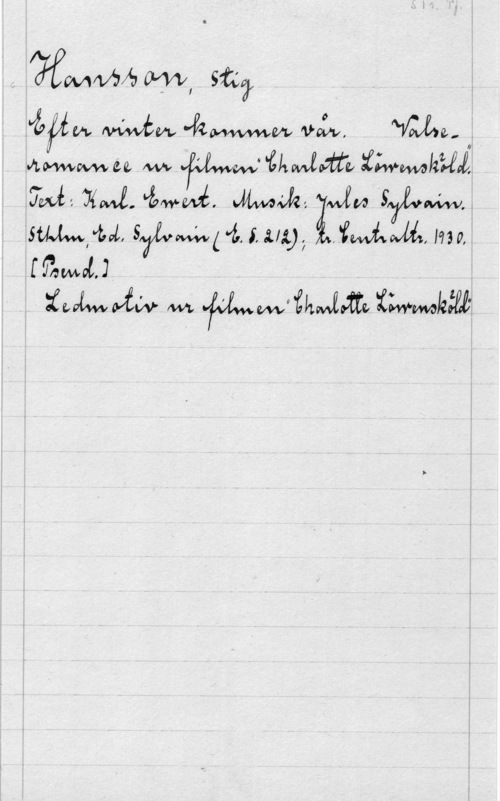 Hansson, Stig
Efter vinter kommer vår. Valse-
romance ur filmen "Charlotte Löwensköld."
Text: Karl-Ewert. Musik: Jules Sylvain.
Sthlm, Ed. Sylvain (E. S. 212); tr. Centraltr. 1930.
[Pseud.]
Ledmotiv ur filmen "Charlotte Löwensköld"